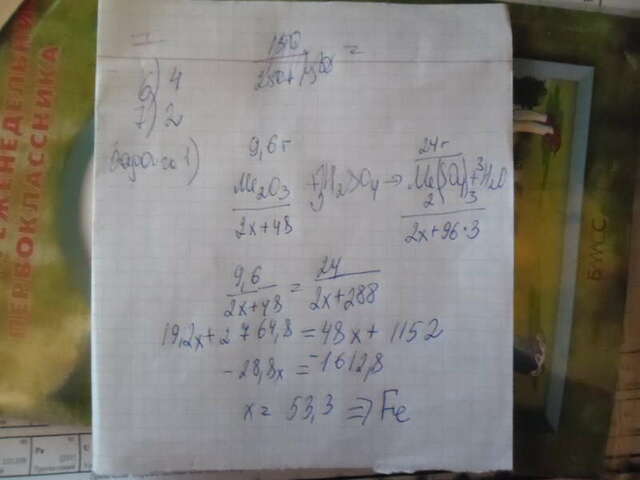 6) 4
7) 2
1)
9,6 г
24 г
Me₂O₃ + 3H₂SO₄ → Me₂(SO₄)₃ + 3H₂O
2x+48
2x+96·3
9,6 / 2x+48 = 24 / 2x+288
19,2x+2764,8=48x+1152
-28,8x=-1612,8
x= 53,3 ⇒ Fe
ЕЖЕНЕДЕЛЬНИК
ПЕРВОКЛАССНИКА